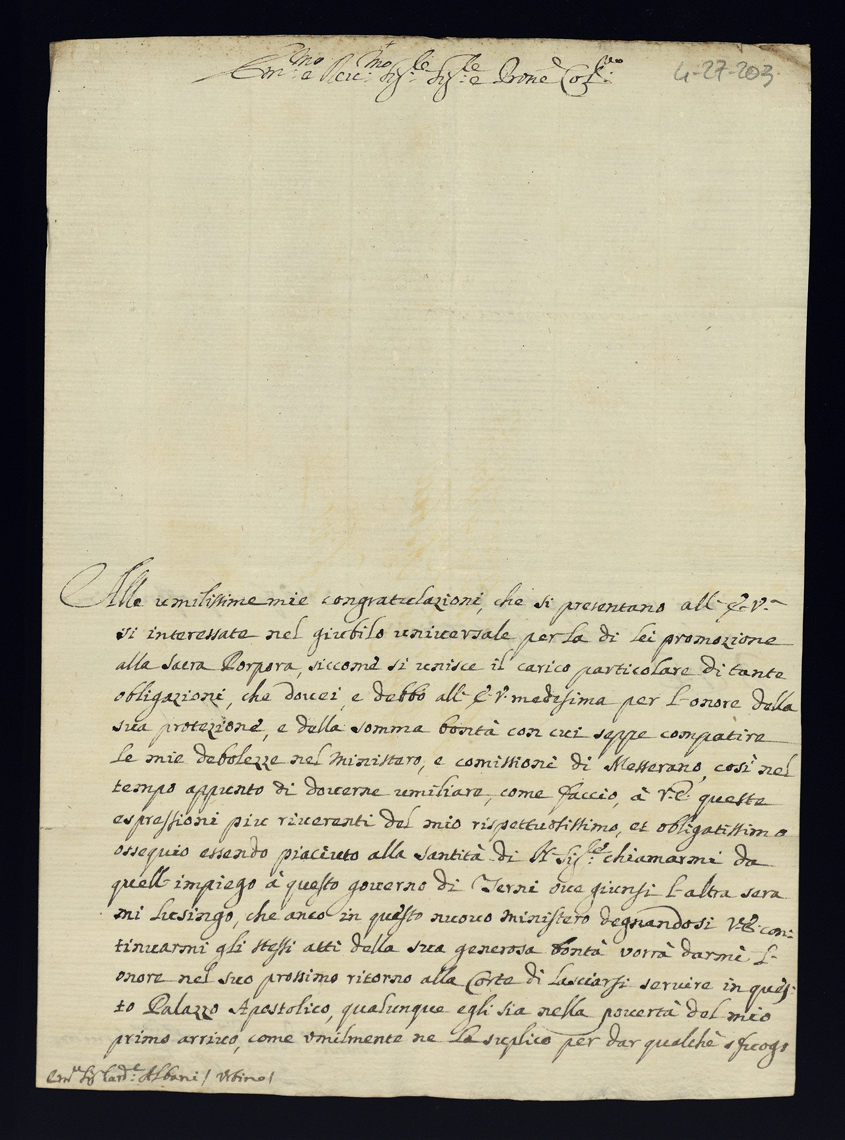 Em.mo e Rev.mo Sig.re Sig.re e Prone Col.mo
4-27-203
Alle umilissime mie congratulazioni, che si presentano all' E. V.
sì interessate nel giubilo universale per la di lei promozione
alla Sacra Porpora, siccome si unisce il carico particolare di tante
obligazioni, che dovei, e debbo all' E. V. medesima per l'onore della
sua protezione, e della somma bontà con cui seppe compatire
le mie debolezze nel Ministero, e comissione di Messerano, così nel
tempo appunto di doverne umiliare, come faccio, à V. E. queste
espressioni più riverenti del mio rispettuosissimo, et obligatissimo
ossequio essendo piaciuto alla Santità di N. Sig.re chiamarmi da
quell'impiego à questo governo di Terni ove giunsi l'altra sera
mi lusingo, che anco in questo nuovo ministero degnandosi V. E. con:
tinuarmi gli stessi atti della sua generosa bontà vorrà darmi l'
onore nel suo prossimo ritorno alla Corte di lasciarsi servire in ques:
to Palazzo Apostolico, qualunque egli sia nella povertà del mio
primo arrivo, come umilmente ne la suplico per dar qualche sfogo
Em.o Sig. Card.e Albani / Urbino /